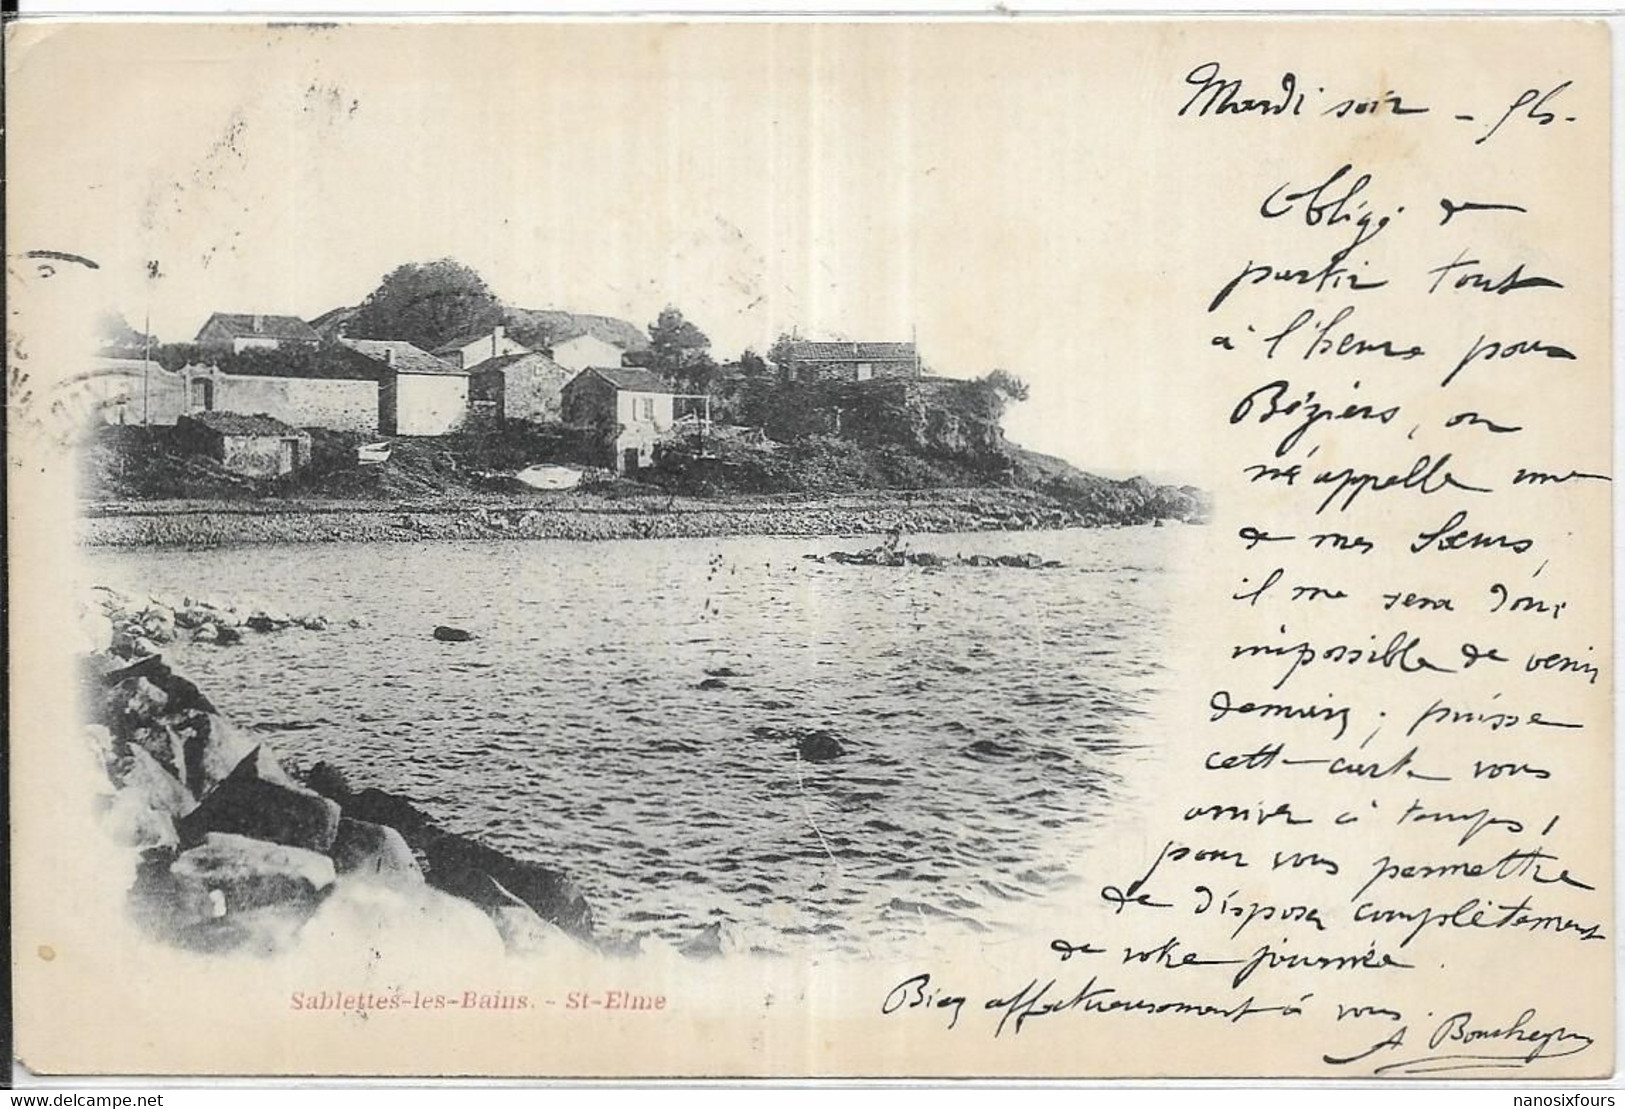 Mardi soir - 5h -
Obligé de
partir tout
à l'heure pour
Béziers, on
m'appelle une
de mes Sœurs,
il me sera donc
impossible de venir
demain ; puisse
cette carte vous
arriver à temps,
pour vous permettre
de disposer complètement
de votre journée.
Bien affectueusement à vous.
A
Sablettes-les-Bains. - St-Elme
nanosixfours